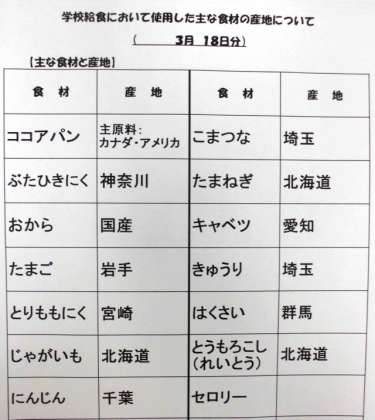 学校給食において使用した主な食材の産地について
(　3月　18日分)
【主な食材と産地】
食　材　産　地　食　材　産　地
ココアパン　主原料：カナダ・アメリカ　こまつな　埼玉
ぶたひきにく　神奈川　たまねぎ　北海道
おから　国産　キャベツ　愛知
たまご　岩手　きゅうり　埼玉
とりももにく　宮崎　はくさい　群馬
じゃがいも　北海道　とうもろこし（れいとう）　北海道
にんじん　千葉　セロリー